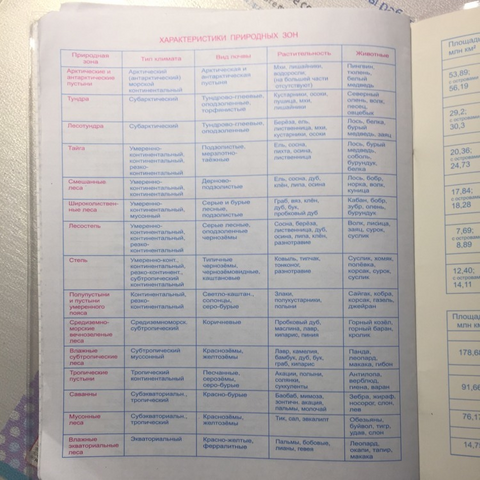 ХАРАКТЕРИСТИКИ ПРИРОДНЫХ ЗОН
Природная зона Тип климата Вид почвы Растительность Животные
Арктические и антарктические пустыни Арктический (антарктический) морской континентальный Арктическая и антарктическая пустыня Мхи, лишайники, водоросли (на большей части отсутствуют) Пингвин, тюлень, белый медведь
Тундра Субарктический Тундрово-глеевые, оподзоленные, торфянистые Кустарники, осоки, пушица, мхи, лишайники Северный олень, волк, песец, пацевый
Лесотундра Субарктический Тундрово-глеевые, оподзоленные Берёза, ель, лиственница, мхи, кустарники, осоки Лось, белка, бурый медведь, заяц
Тайга Умеренно-континентальный, континентальный, резко-континентальный Подзолистые, мерзлотно-таёжные Ель, сосна, пихта, осина, лиственница Лось, бурый медведь, соболь, бурундук, белка
Смешанные леса Умеренно-континентальный, континентальный Дерново-подзолистые Ель, сосна, дуб, клён, липа, осина Лось, бобр, норка, волк, куница
Широколиственные леса Умеренно-континентальный, муссонный Серые и бурые лесные, подзолистые Граб, вяз, клён, дуб, бук, пробковый дуб Кабан, бобр, зубр, олень, бурундук
Лесостепь Умеренно-континентальный, континентальный, резко-континентальный Серые лесные, оподзоленные чернозёмы Сосна, берёза, лиственница, дуб, осина, липа, клён, разнотравие Волк, лисица, заяц, сурок, суслик
Степь Умеренно-конт., континентальный, резко-континент., субтропический континентальный Типичные чернозёмы, чернозёмовидные, каштановые Ковыль, типчак, тонконог, разнотравие Суслик, хомяк, полёвка, корсак, сурок, суслик
Полупустыни и пустыни умеренного пояса Континентальный, резко-континентальный Светло-каштан., солонцы, серо-бурые Злаки, полукустарники, полыни Сайгак, кобра, корсак, газель, джейран
Средиземно-морские вечнозелёные леса Средиземноморск. субтропический Коричневые Пробковый дуб, маслина, лавр, кипарис, пиния Горный козёл, горный баран, кролик
Влажные субтропические леса Субтропический муссонный Краснозёмы, желтозёмы Лавр, камелия, бамбук, дуб, бук, граб, кипарис Панда, леопард, макака, гиббон
Тропические пустыни Тропический континентальный Песчаные, серозёмы, серо-бурые Акации, полыни, солянки, суккуленты Антилопа, верблюд, гиена, варан
Саванны Субэкваториальн., тропический Красно-бурые Баобаб, мимоза, зонтичн. акация, пальмы, молочай Зебра, жираф, носорог, слон, лев
Муссонные леса Субэкваториальн., тропический Краснозёмы, желтозёмы Тик, сал, эвкалипт Обезьяны, буйвол, тигр, удав, слон
Влажные экваториальные леса Экваториальный Красно-желтые, ферралитные Пальмы, бобовые, лианы, гевея Леопард, окапи, тапир, макака
Площадь млн км²
53,89;
с островами
56,19
29,2;
с островами
30,3
20,36;
с островами
24,73
17,84;
с островами
18,28
7,69;
с островами
8,89
12,40;
с островами
14,11
Площадь млн км
178,68
91,66
76,17
14,75